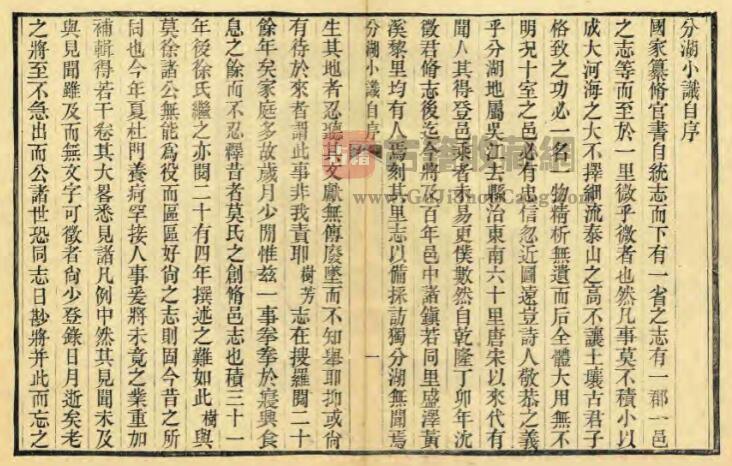 分湖小識自序
國家纂脩官書自統志而下有一省之志有一郡一邑
之志等而至於一里微乎微者也然凡事莫不積小以
成大河海之大不擇細流泰山之高不讓土壤古君子
格致之功必一名一物精析無遺而后全體大用無不
明况十室之邑必有忠信忽近圖遠豈詩人敬恭之義
乎分湖地屬吳江去縣治東南六十里唐宋以來代有
聞人其得登邑乘者未易更僕數然自乾隆丁卯年沈
徵君脩志後迄今將及百年邑中諸鎮若同里盛澤黃
溪黎里均有人焉刻其里志以備採訪獨分湖無聞焉
分湖小識自序 一
生其地者忍聽其文獻無傳廢墜而不知舉耶抑或尙
有待於來者謂此事非我責耶樹芳志在搜羅閱二十
餘年矣家庭多故歲月少閒惟兹一事拳拳於寢興食
息之餘而不忍釋昔者莫氏之創脩邑志也積三十一
年後徐氏繼之亦閱二十有四年撰述之難如此樹與
莫徐諸公無能爲役而區區好尙之志則固今昔之所
同也今年夏杜門養疴罕接人事爰將未竟之業重加
補輯得若干卷其大畧悉見諸凡例中然其見聞未及
與見聞雖及而無文字可徵者尙少登錄日月逝矣老
之將至不急出而公諸世恐同志日尠將并此而忘之
www.GuJiShouCang.com